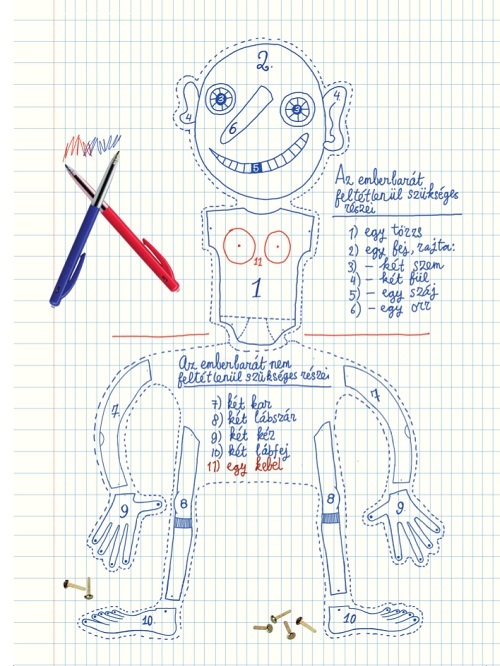 2.
3
3
4
4
6
5
Az emberbarát
feltétlenül szükséges
részei
1) egy törzs
2) egy fej, rajta:
3) – két szem
4) – két fül
5) – egy száj
6) – egy orr
11
1
Az emberbarát nem
feltétlenül szükséges részei
7) két kar
8) két lábszár
9) két kéz
10) két lábfej
11) egy kebel
7
7
8
8
9
9
10
10